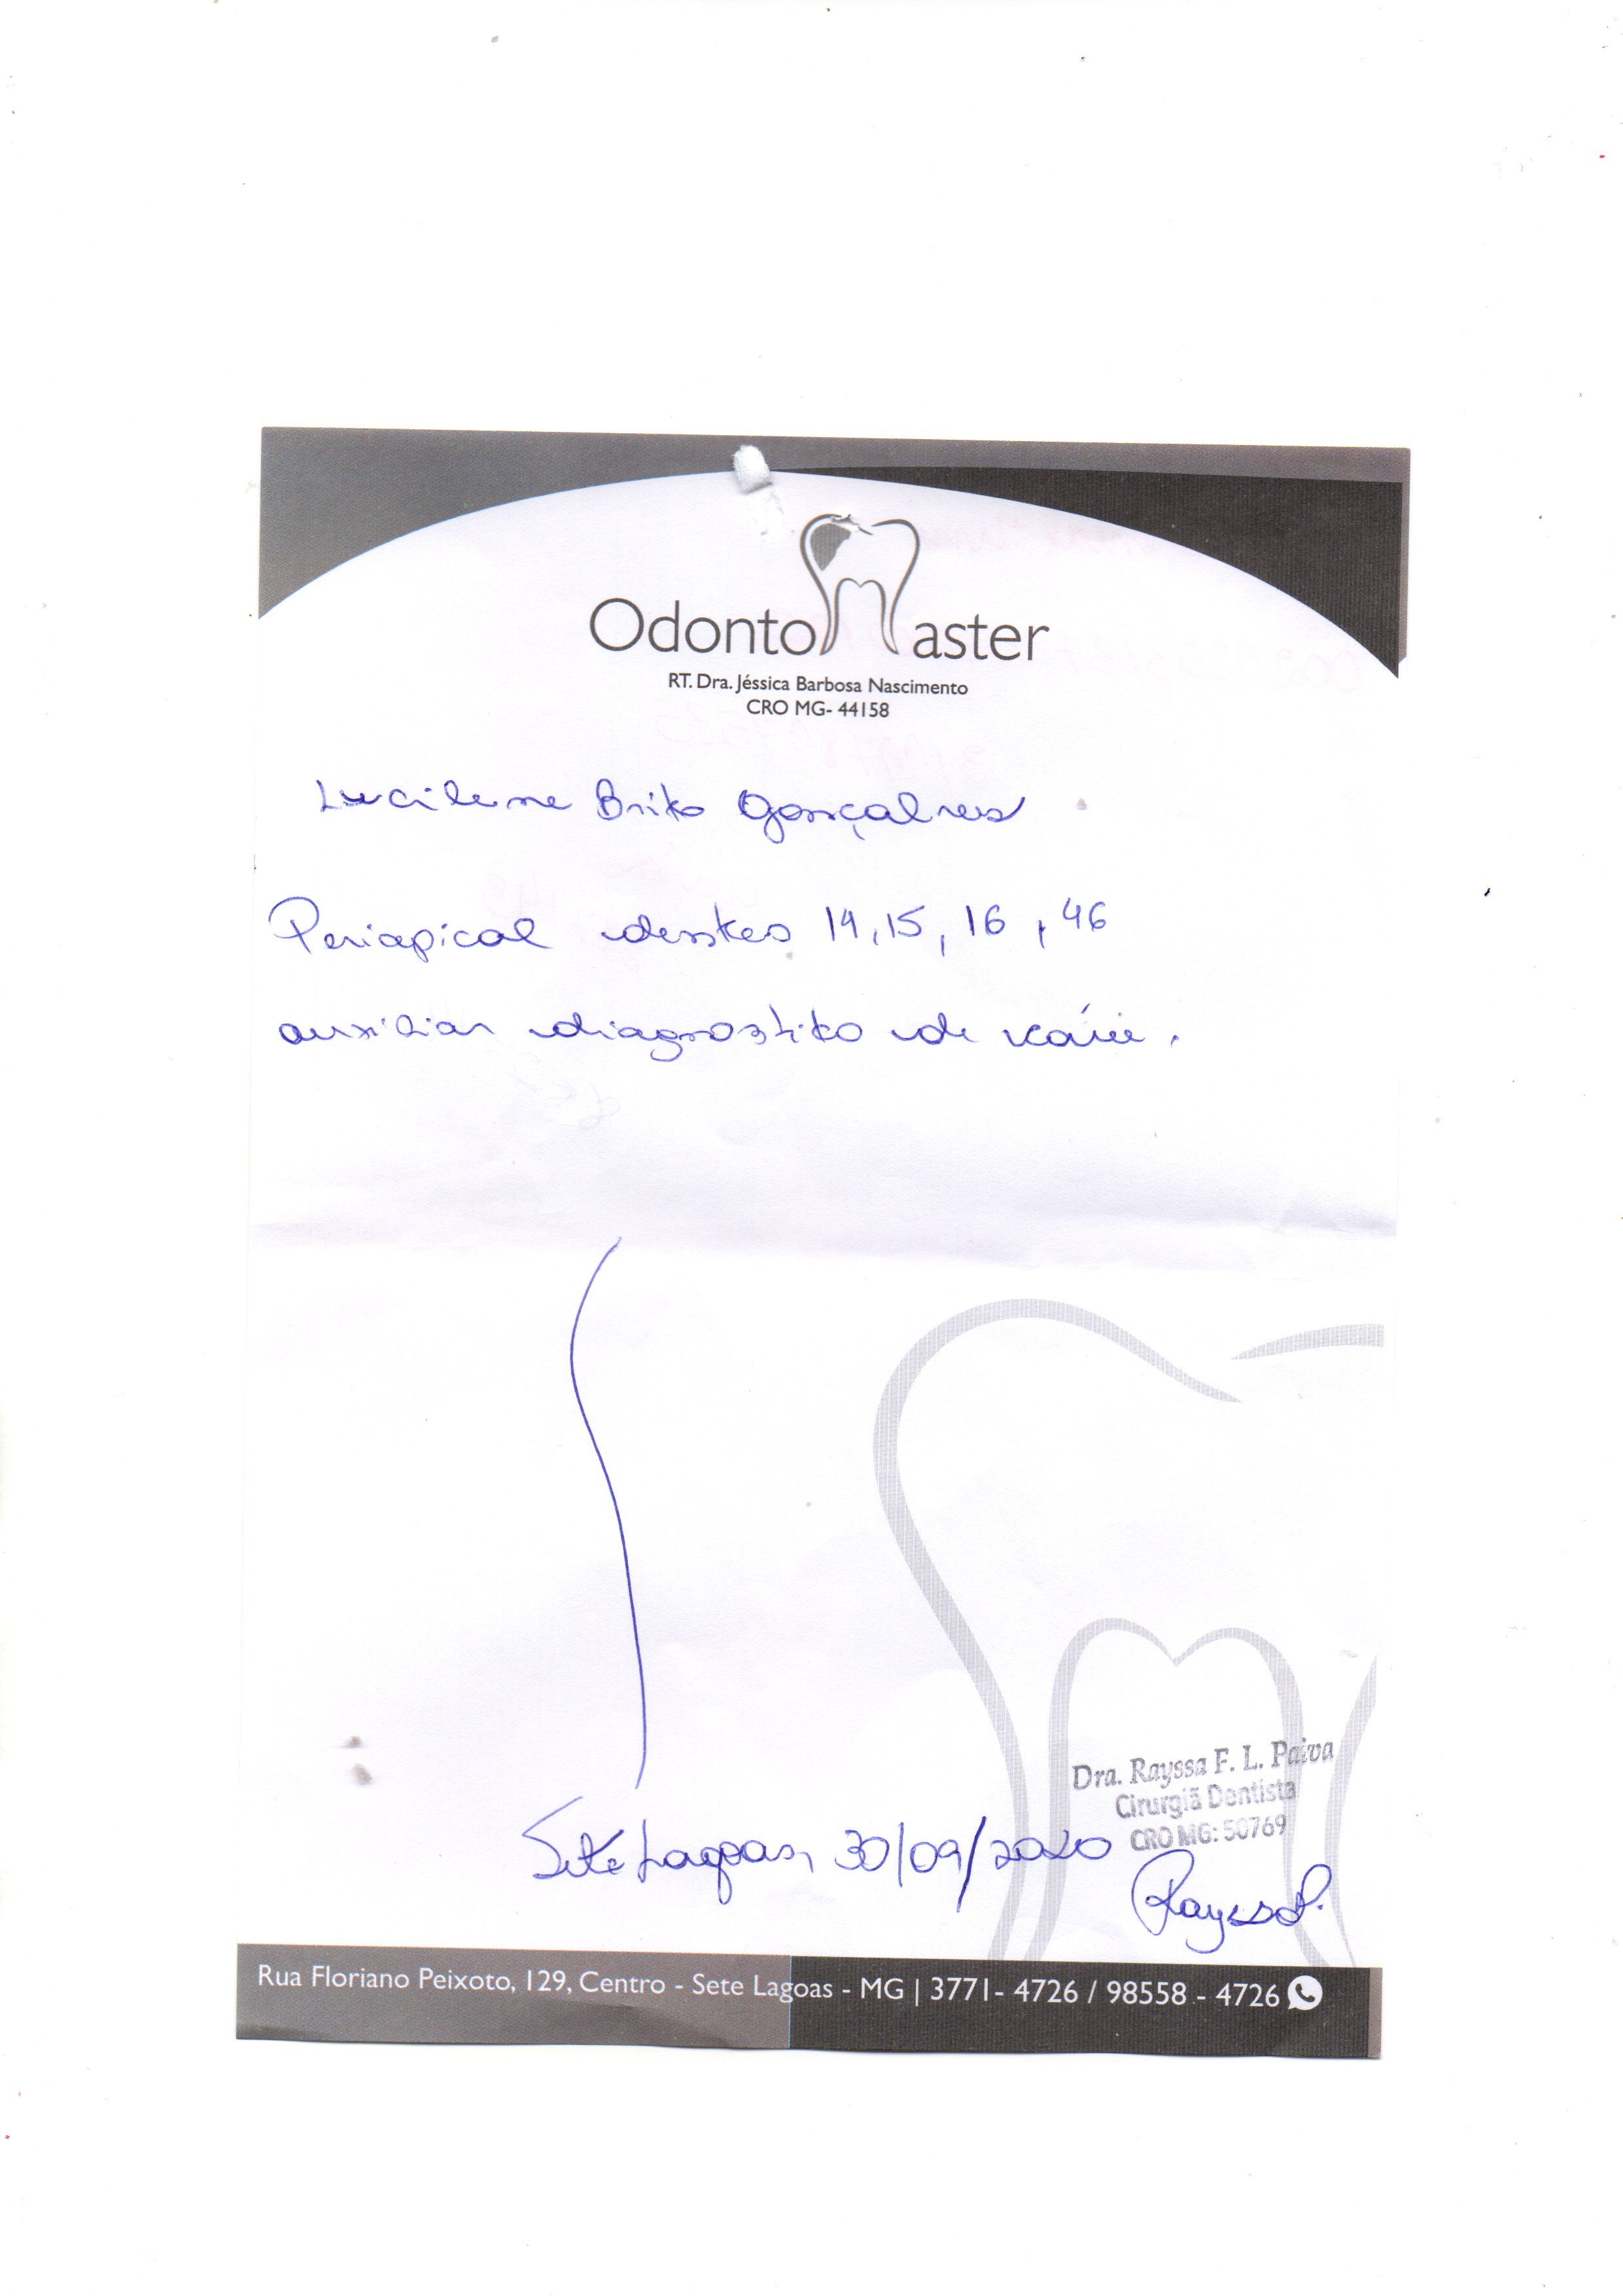 Odonto Master
RT. Dra. Jéssica Barbosa Nascimento
CRO MG- 44158
Lucilene Brito Gonçalves
Periapical dentes 14, 15, 16, 46
auxiliar diagnostico de cárie.
Dra. Rayssa F. L. Paiva
Cirurgiã Dentista
CRO MG: 50769
Sete Lagoas, 30/09/2020
Rayssa P.
Rua Floriano Peixoto, 129, Centro - Sete Lagoas - MG | 3771- 4726 / 98558 - 4726